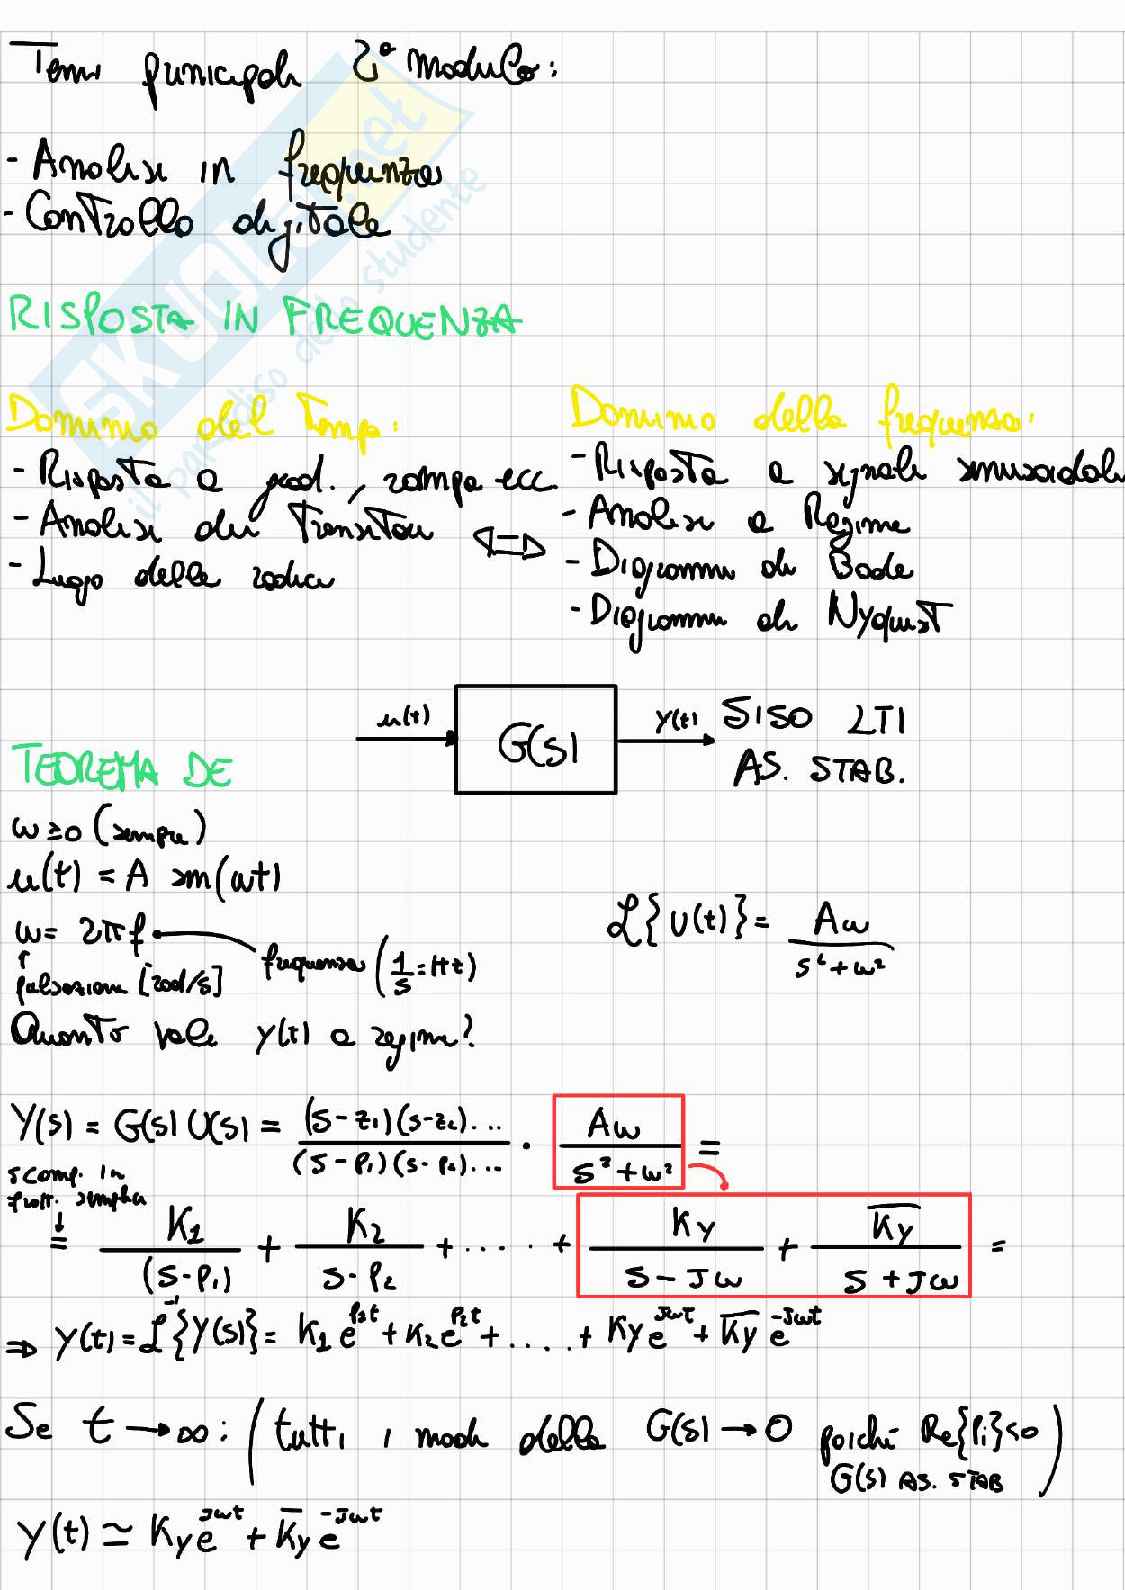 Temi principali 2° modulo:
- Analisi in frequenza
- Controllo digitale
SKUOLA.net
il paradiso dello studente
RISPOSTA IN FREQUENZA
Dominio del Tempo:
- Risposta a grad., rampa ecc.
- Analisi dei Transitori
- Luogo delle radici
⇔
Dominio della frequenza:
- Risposta a segnali sinusoidali
- Analisi a Regime
- Diagrammi di Bode
- Diagrammi di Nyquist
u(t) G(s) y(t) SISO LTI
AS. STAB.
TEOREMA DE
ω ≥ 0 (sempre)
u(t) = A sin(ωt)
ω = 2πf frequenza (1/s = Hz)
pulsazione [rad/s]
ℒ{U(t)} = Aω / (s²+ω²)
Quanto vale y(t) a regime?
Y(s) = G(s) U(s) = (s-z₁)(s-z₂)... / (s-p₁)(s-p₂)... · Aω / (s²+ω²) =
scomp. in
fratt. semplici
= K₁/(s-p₁) + K₂/(s-p₂) + .... + Ky/(s-Jω) + K̅y̅/(s+Jω) =
⇒ y(t) = ℒ⁻¹{Y(s)} = K₁e^{p₁t} + K₂e^{p₂t} + .... + Ky e^{Jωt} + K̅y̅ e^{-Jωt}
Se t → ∞: (tutti i modi della G(s) → 0 poichè Re{Pi}≤0)
G(s) AS. STAB
y(t) ≃ Ky e^{Jωt} + K̅y e^{-Jωt}